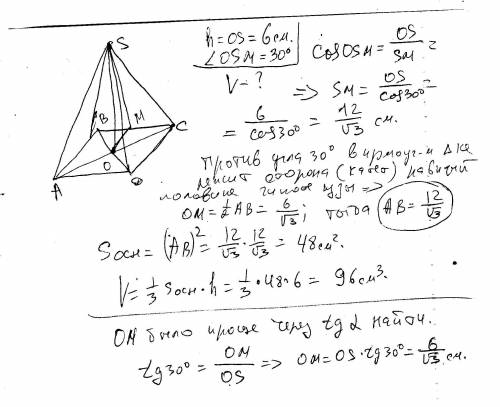 h = OS = 6 см.
∠OSM = 30°
V - ?
cos OSM = OS/SM =
=> SM = OS/cos30° =
= 6/cos30° = 12/√3 см.
Против угла 30° в прямоуг-м Δ-ке
лежит сторона (катет) равный
половине гипотенузы =>
OM = ½AB = 6/√3; тогда AB = 12/√3
Sосн = (AB)² = 12/√3 · 12/√3 = 48 см².
V = 1/3 Sосн · h = 1/3 · 48 · 6 = 96 см³.
OM было проще через tg α найти.
tg 30° = OM/OS => OM = OS · tg30° = 6/√3 см.
S
B
M
C
O
A